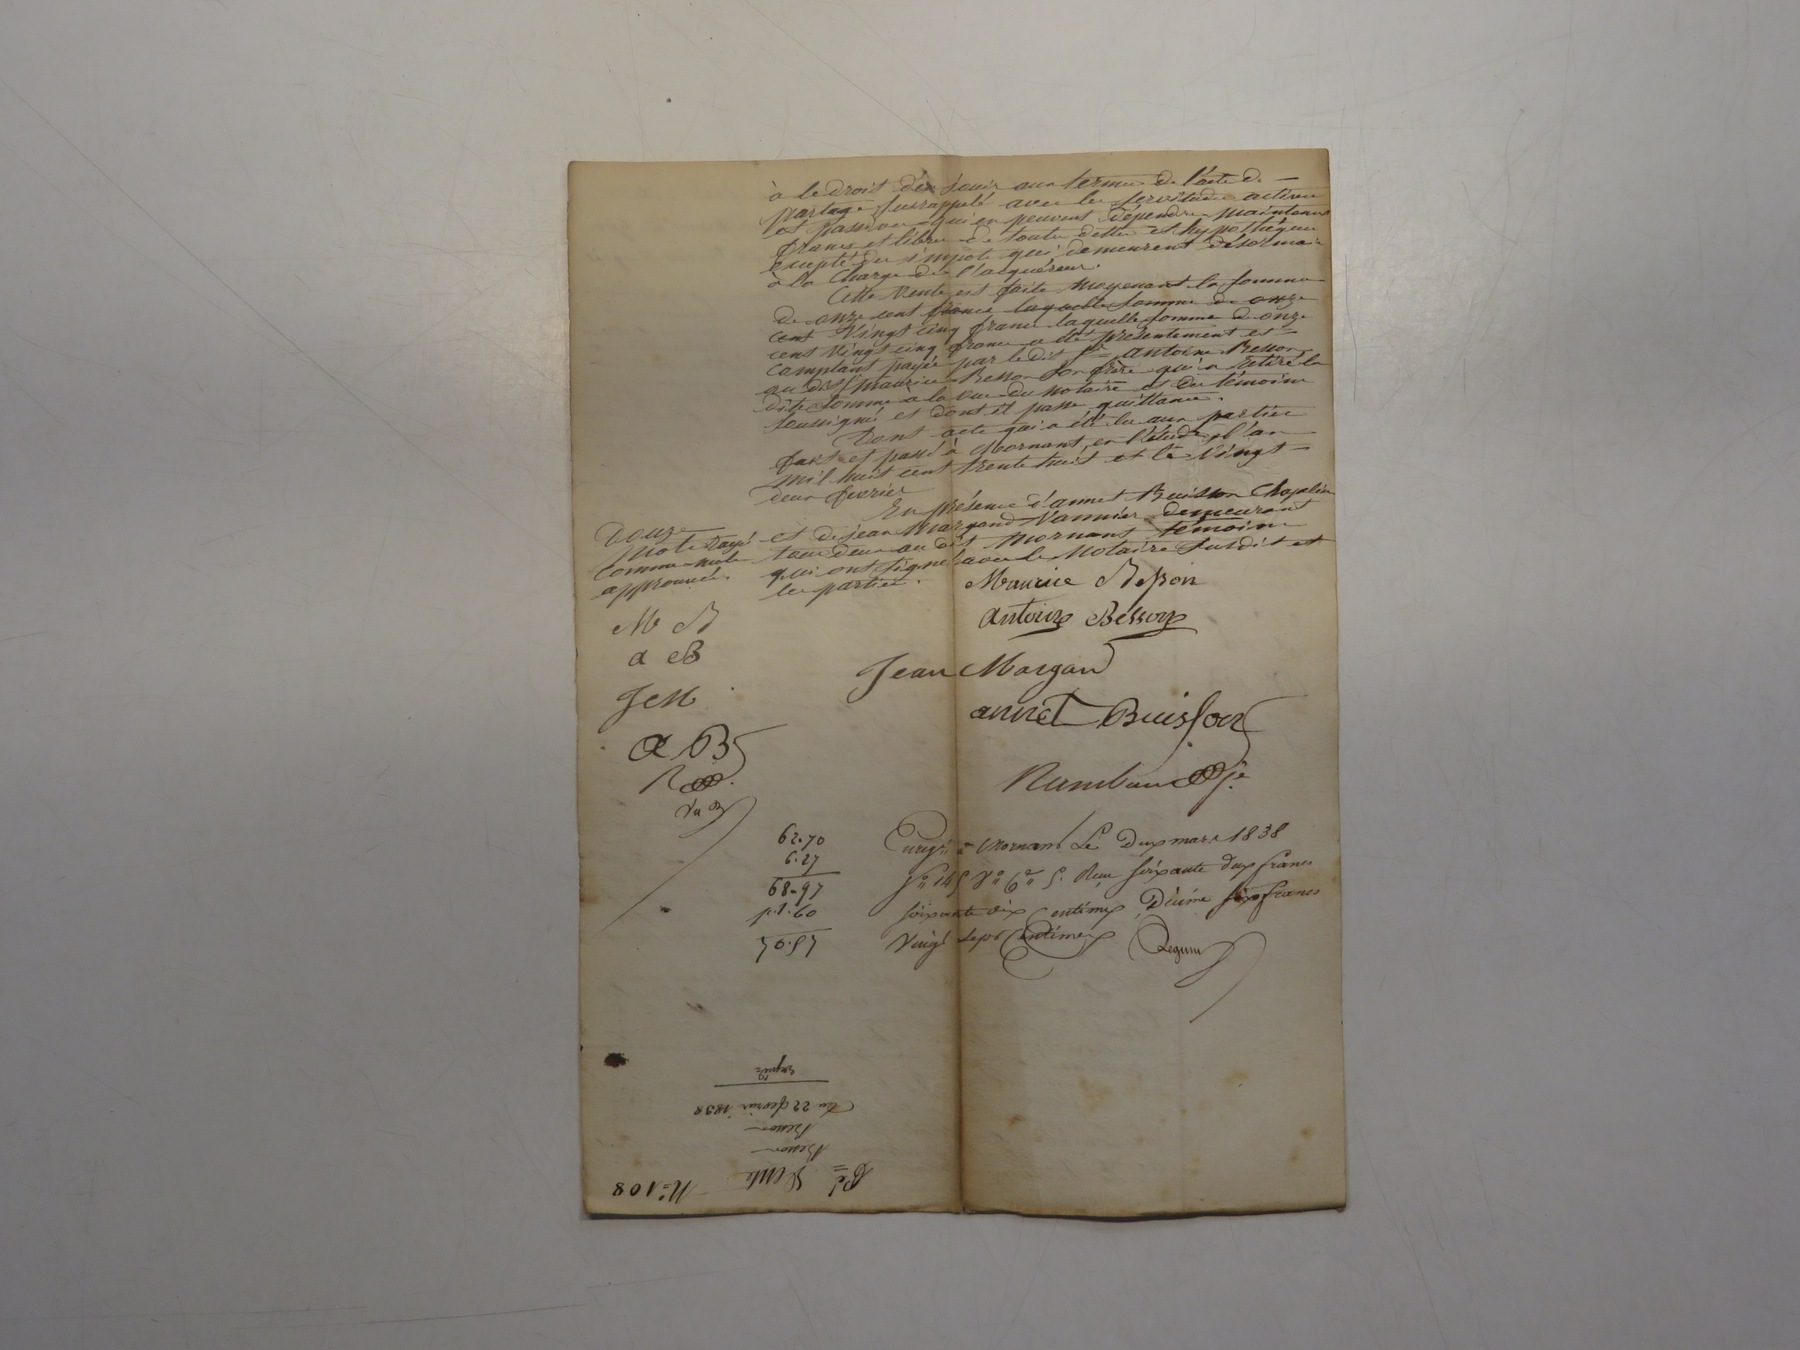 à le droit d'en jouir aux termes de l'acte de
partage susrappelé avec les servitudes actives
et passives qui en peuvent dépendre maintenus
francs et libres de toutes dettes et hypothèques
excepté des impots qui demeurent désormais
à la charge de l'acquéreur.
Cette vente est faite moyenant la somme
de onze cent francs laquelle somme de onze
cent vingt cinq francs laquelle somme de onze
cent vingt cinq francs a été présentement et
comptant payée par le dit Sr antoine Besson
au dit Sr maurice Besson son frère qui a retiré la
dite somme a la vue du notaire et des témoins
soussignés et dont il passe quittance.
Dont acte qui a été lu aux parties
fait et passé à Mornant en l'étude l'an
mil huit cent trente huit et le vingt
deux fevrier
En présence d'annet Buisson Chapelier
et de jean Margand Vannier demeurant
tous deux au dit Mornant témoins
qui ont signé avec le Notaire susdit et
les parties.
Douze
mots rayés
comme nuls
approuvés.
Maurice Besson
antoine Besson
Jean Margand
annet Buisson
M B
a B
J M
a B
62.70
6.27
68.97
p. 1.60
70.57
Enregtré à Mornant Le Deux mars 1838
fo 145 Vo Reçu soixante deux francs
soixante dix centimes, Décime six francs
vingt sept centimes
No 108
Vente
Besson
Besson
Du 22 fevrier 1838